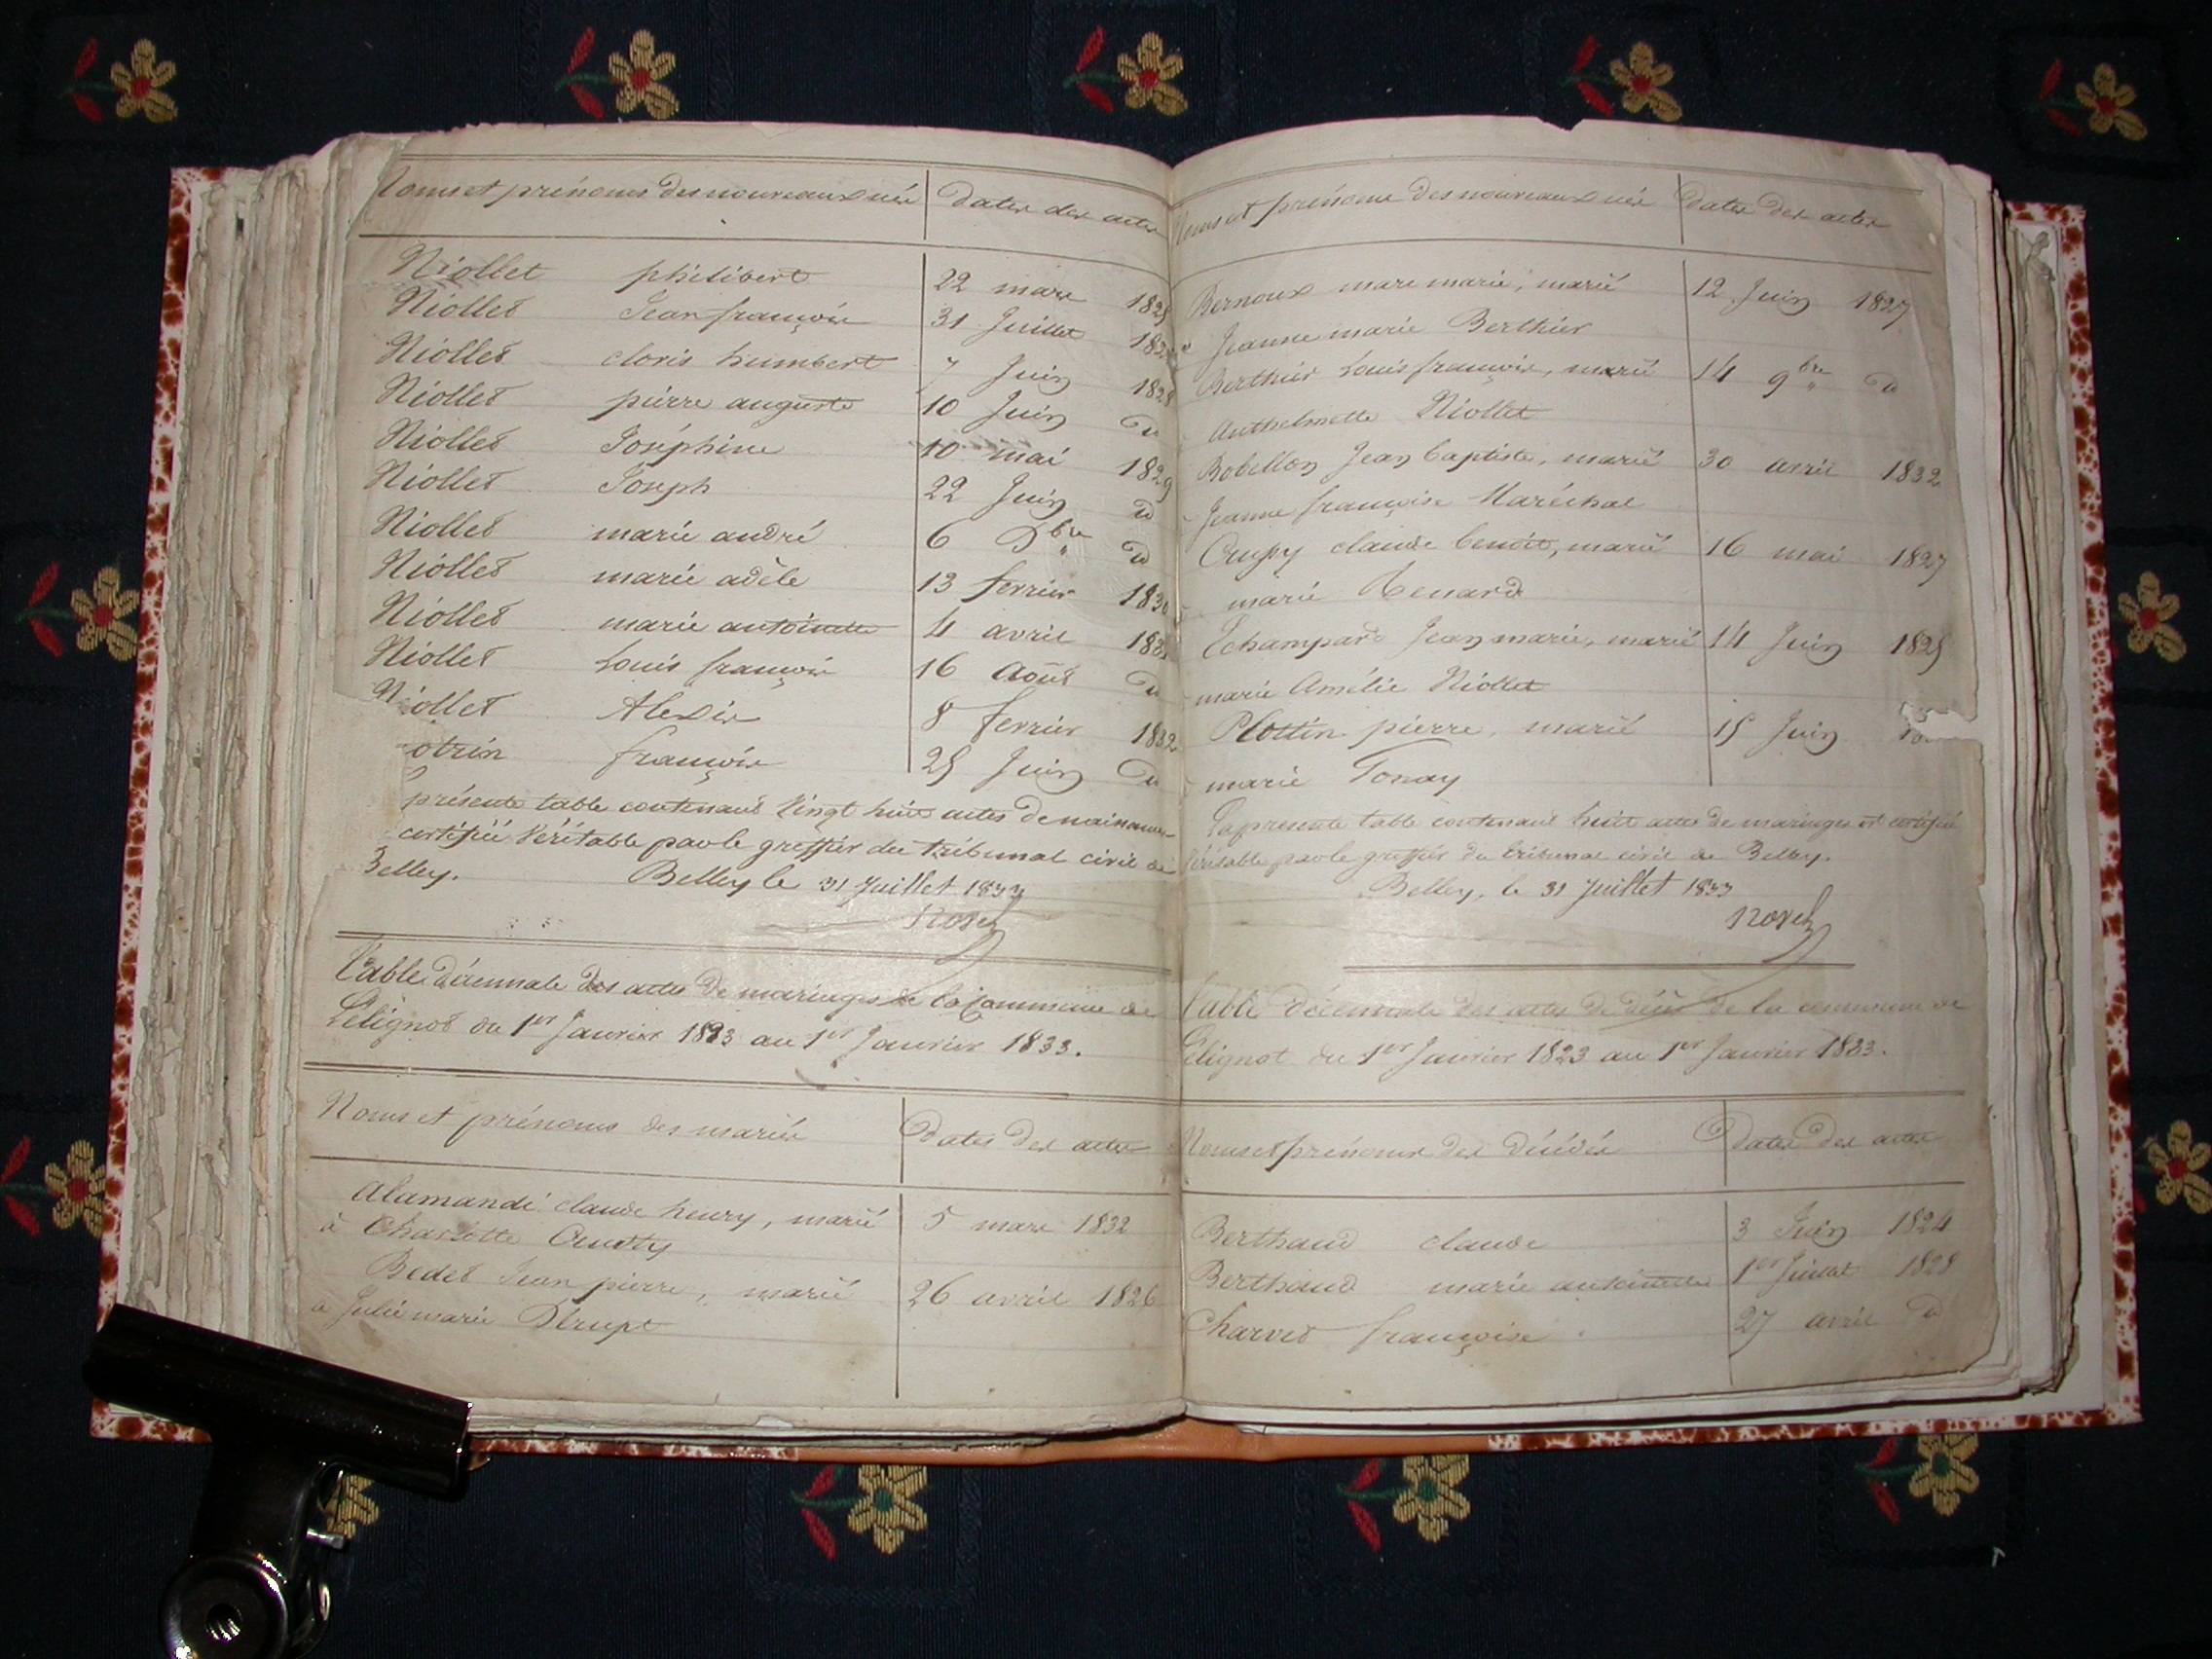 Noms et prénoms des nouveaux nés Dates des actes
Niollet philibert 22 mars
Niollet Jean françois 31 Juillet
Niollet cloris humbert 7 Juin 1828
Niollet pierre auguste 10 Juin do
Niollet Joséphine 10 mai 1829
Niollet Joseph 22 Juin do
Niollet marie andré 6 Dbre do
Niollet marie adèle 13 ferrier 1830
Niollet marie antoinette 4 avril
Niollet Louis françois 16 Aout do
Niollet Alexis 8 ferrier 1832
otrin françois 25 Juin do
présente table contenant Vingt huit actes de naissances
certifiée Véritable par le greffier du tribunal civil de
Belley. Belley le 31 Juillet 1833
Table décennale des actes de mariages de la Commune de
Lélignot du 1er Janvier 1823 au 1er Janvier 1833.
Noms et prénoms des mariés Dates des actes
Alamandi claude henry, marié 5 mars 1832
à Charlotte
Bedet Jean pierre, marié 26 avril 1826
à Julie marie
Noms et prénoms des nouveaux nés Dates des actes
Bernoux marc marie, marié 12 Juin 1827
a Jeanne marie Berthier
Berthier Louis françois, marié 14 9bre do
Anthelmette Niollet
Bobillon Jean baptiste, marié 30 avril 1832
Jeanne françoise Maréchal
claude benoit, marié 16 mai 1827
marie Renard
Echampard Jean marie, marié 14 Juin 1825
marie Amélie Niollet
Plottin pierre, marié 15 Juin do
marie Tonay
La présente table contenant huit actes de mariages est certifiée
Véritable par le greffier du tribunal civil de Belley.
Belley, le 31 Juillet 1833
Table décennale des actes de décès de la commune de
Lélignot du 1er Janvier 1823 au 1er Janvier 1833.
Noms et prénoms des décédés Dates des actes
Berthaud claude 3 Juin 1824
Berthaud marie antoinette 1er Juillet 1828
Charvet françoise 27 avril do